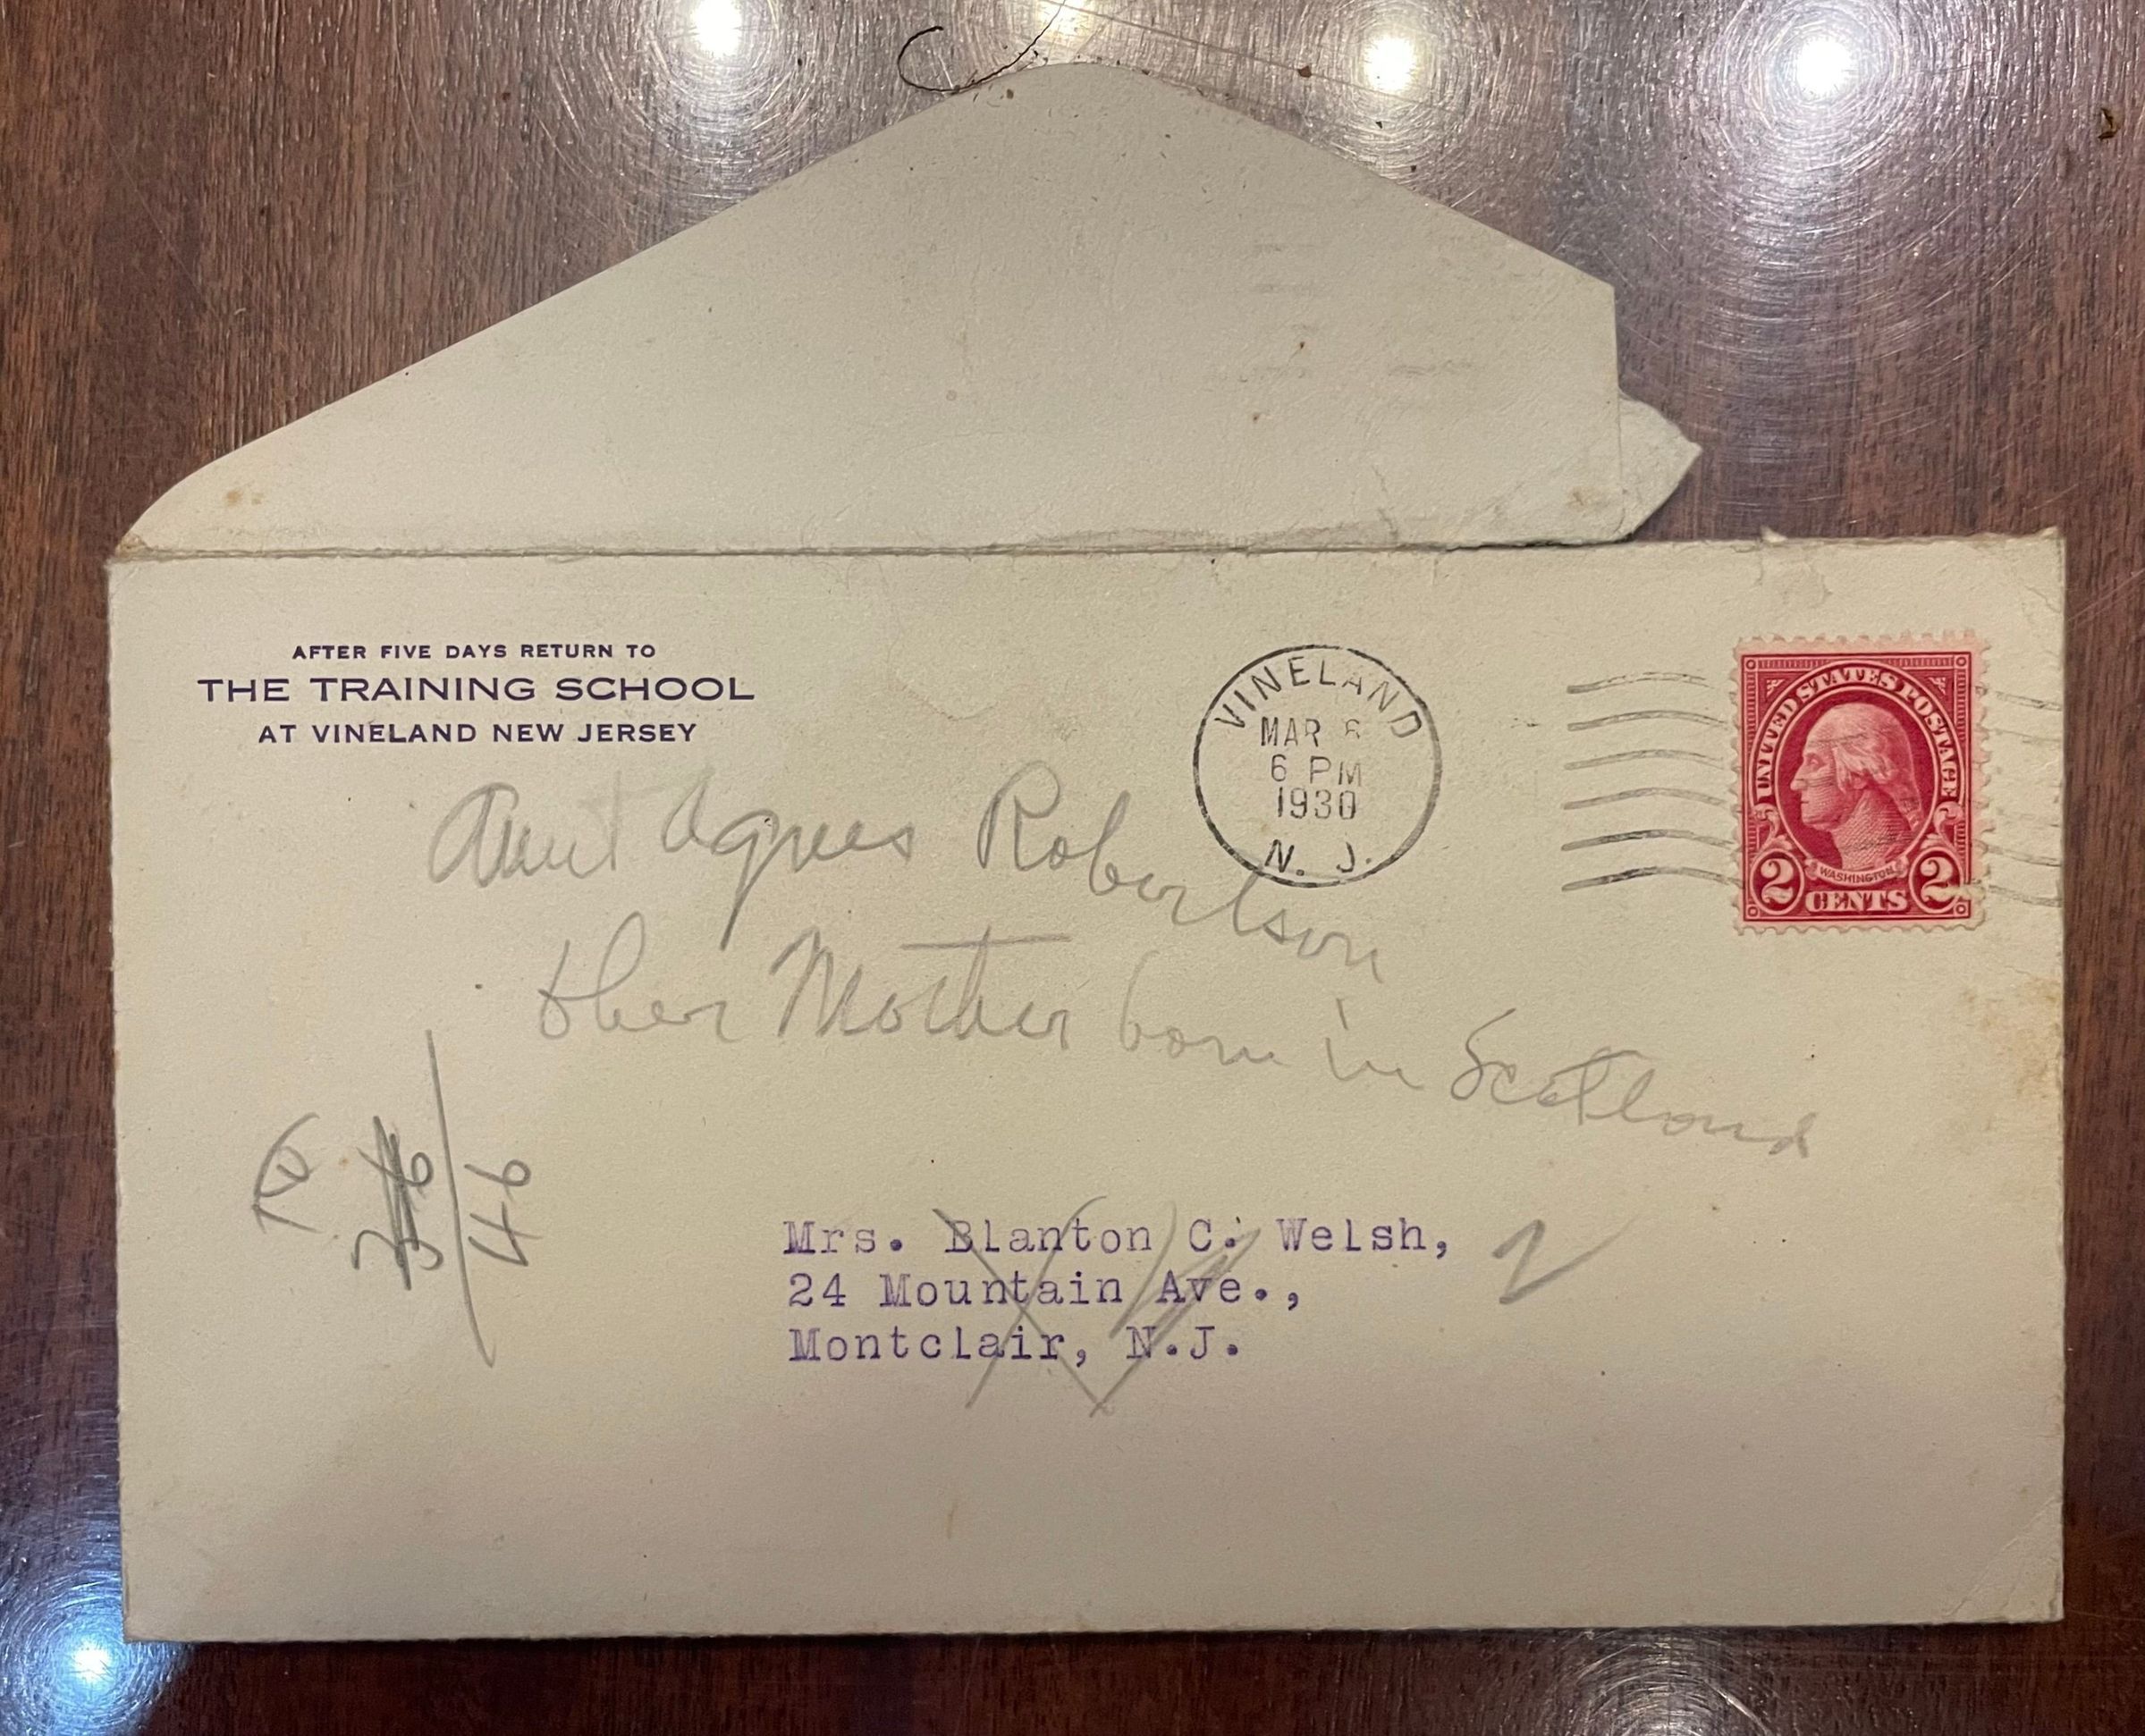 AFTER FIVE DAYS RETURN TO
THE TRAINING SCHOOL
AT VINELAND NEW JERSEY
VINELAND
MAR
6 PM
1930
N. J.
UNITED STATES POSTAGE
WASHINGTON
2 CENTS 2
Aunt Agnes Robertson
her Mother born in Scotland
46
Mrs. Blanton C. Welsh,
24 Mountain Ave.,
Montclair, N.J.